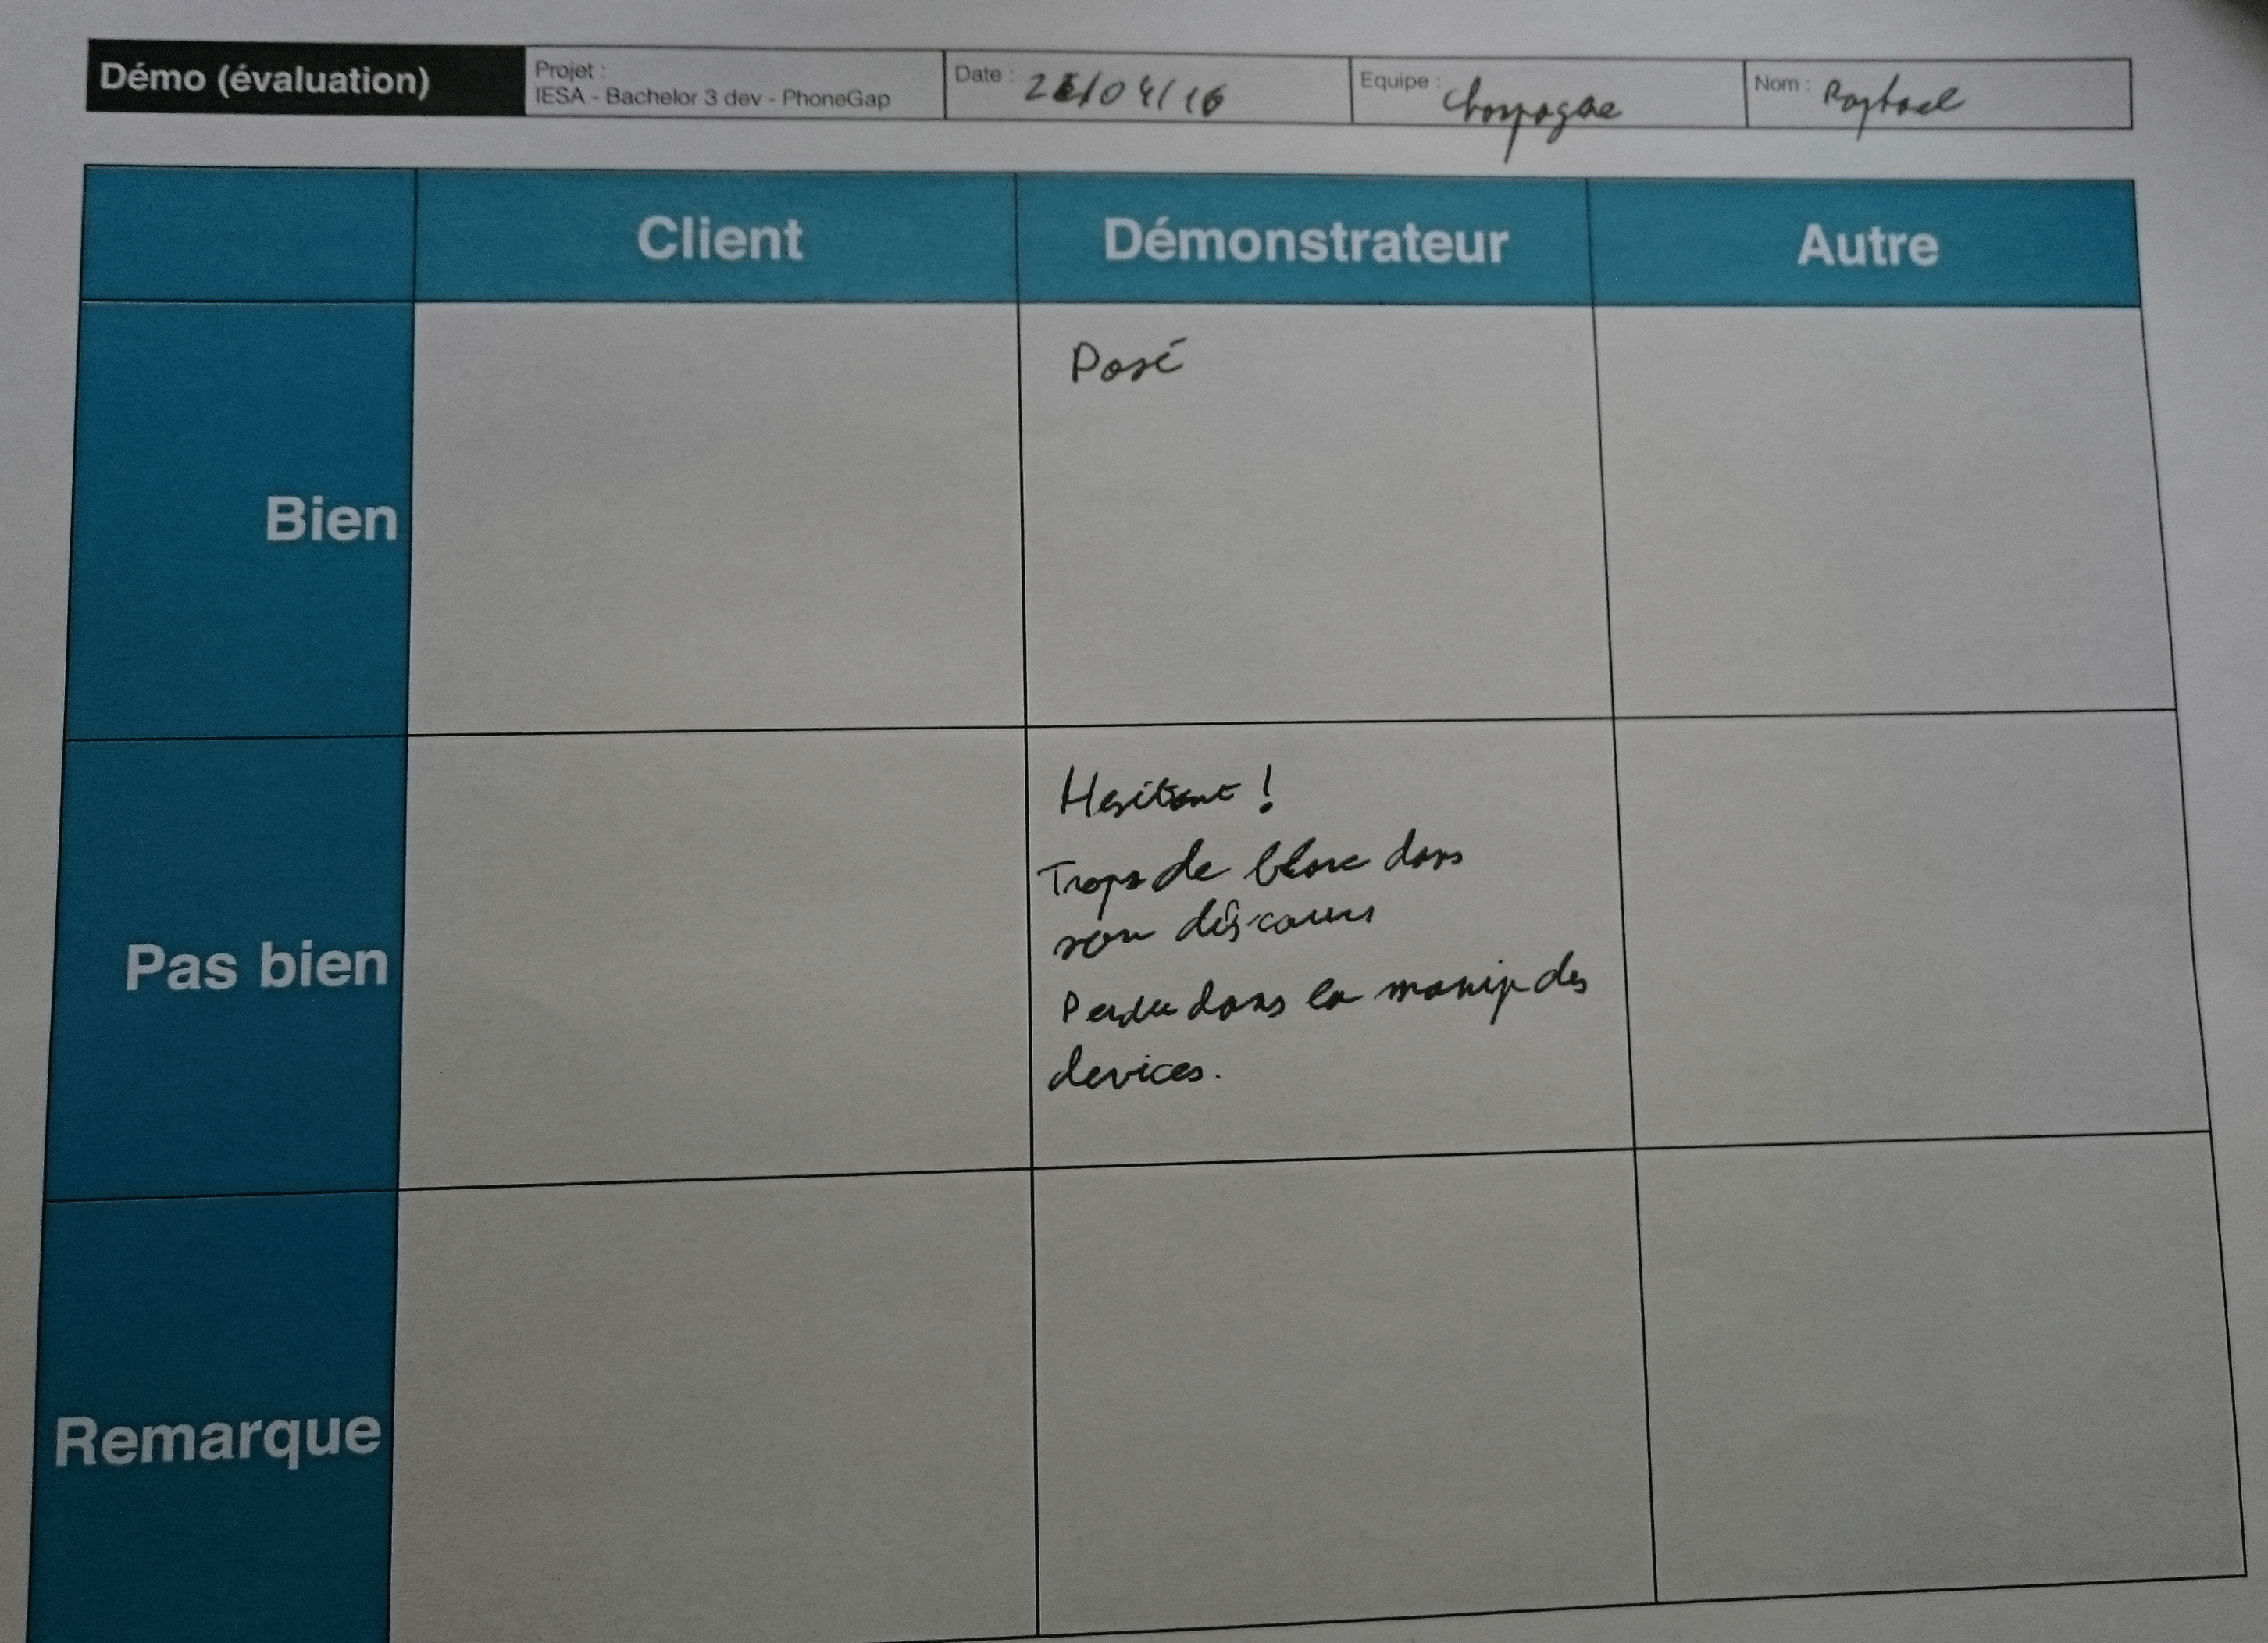 Démo (évaluation)
Projet :
IESA - Bachelor 3 dev - PhoneGap
Date : /04/16
Equipe : Champagne
Nom : Raphael
Client
Démonstrateur
Autre
Bien
Posé
Pas bien
Hesitant !
Trops de blanc dans
son discours
Perdu dans la manip des
devices.
Remarque